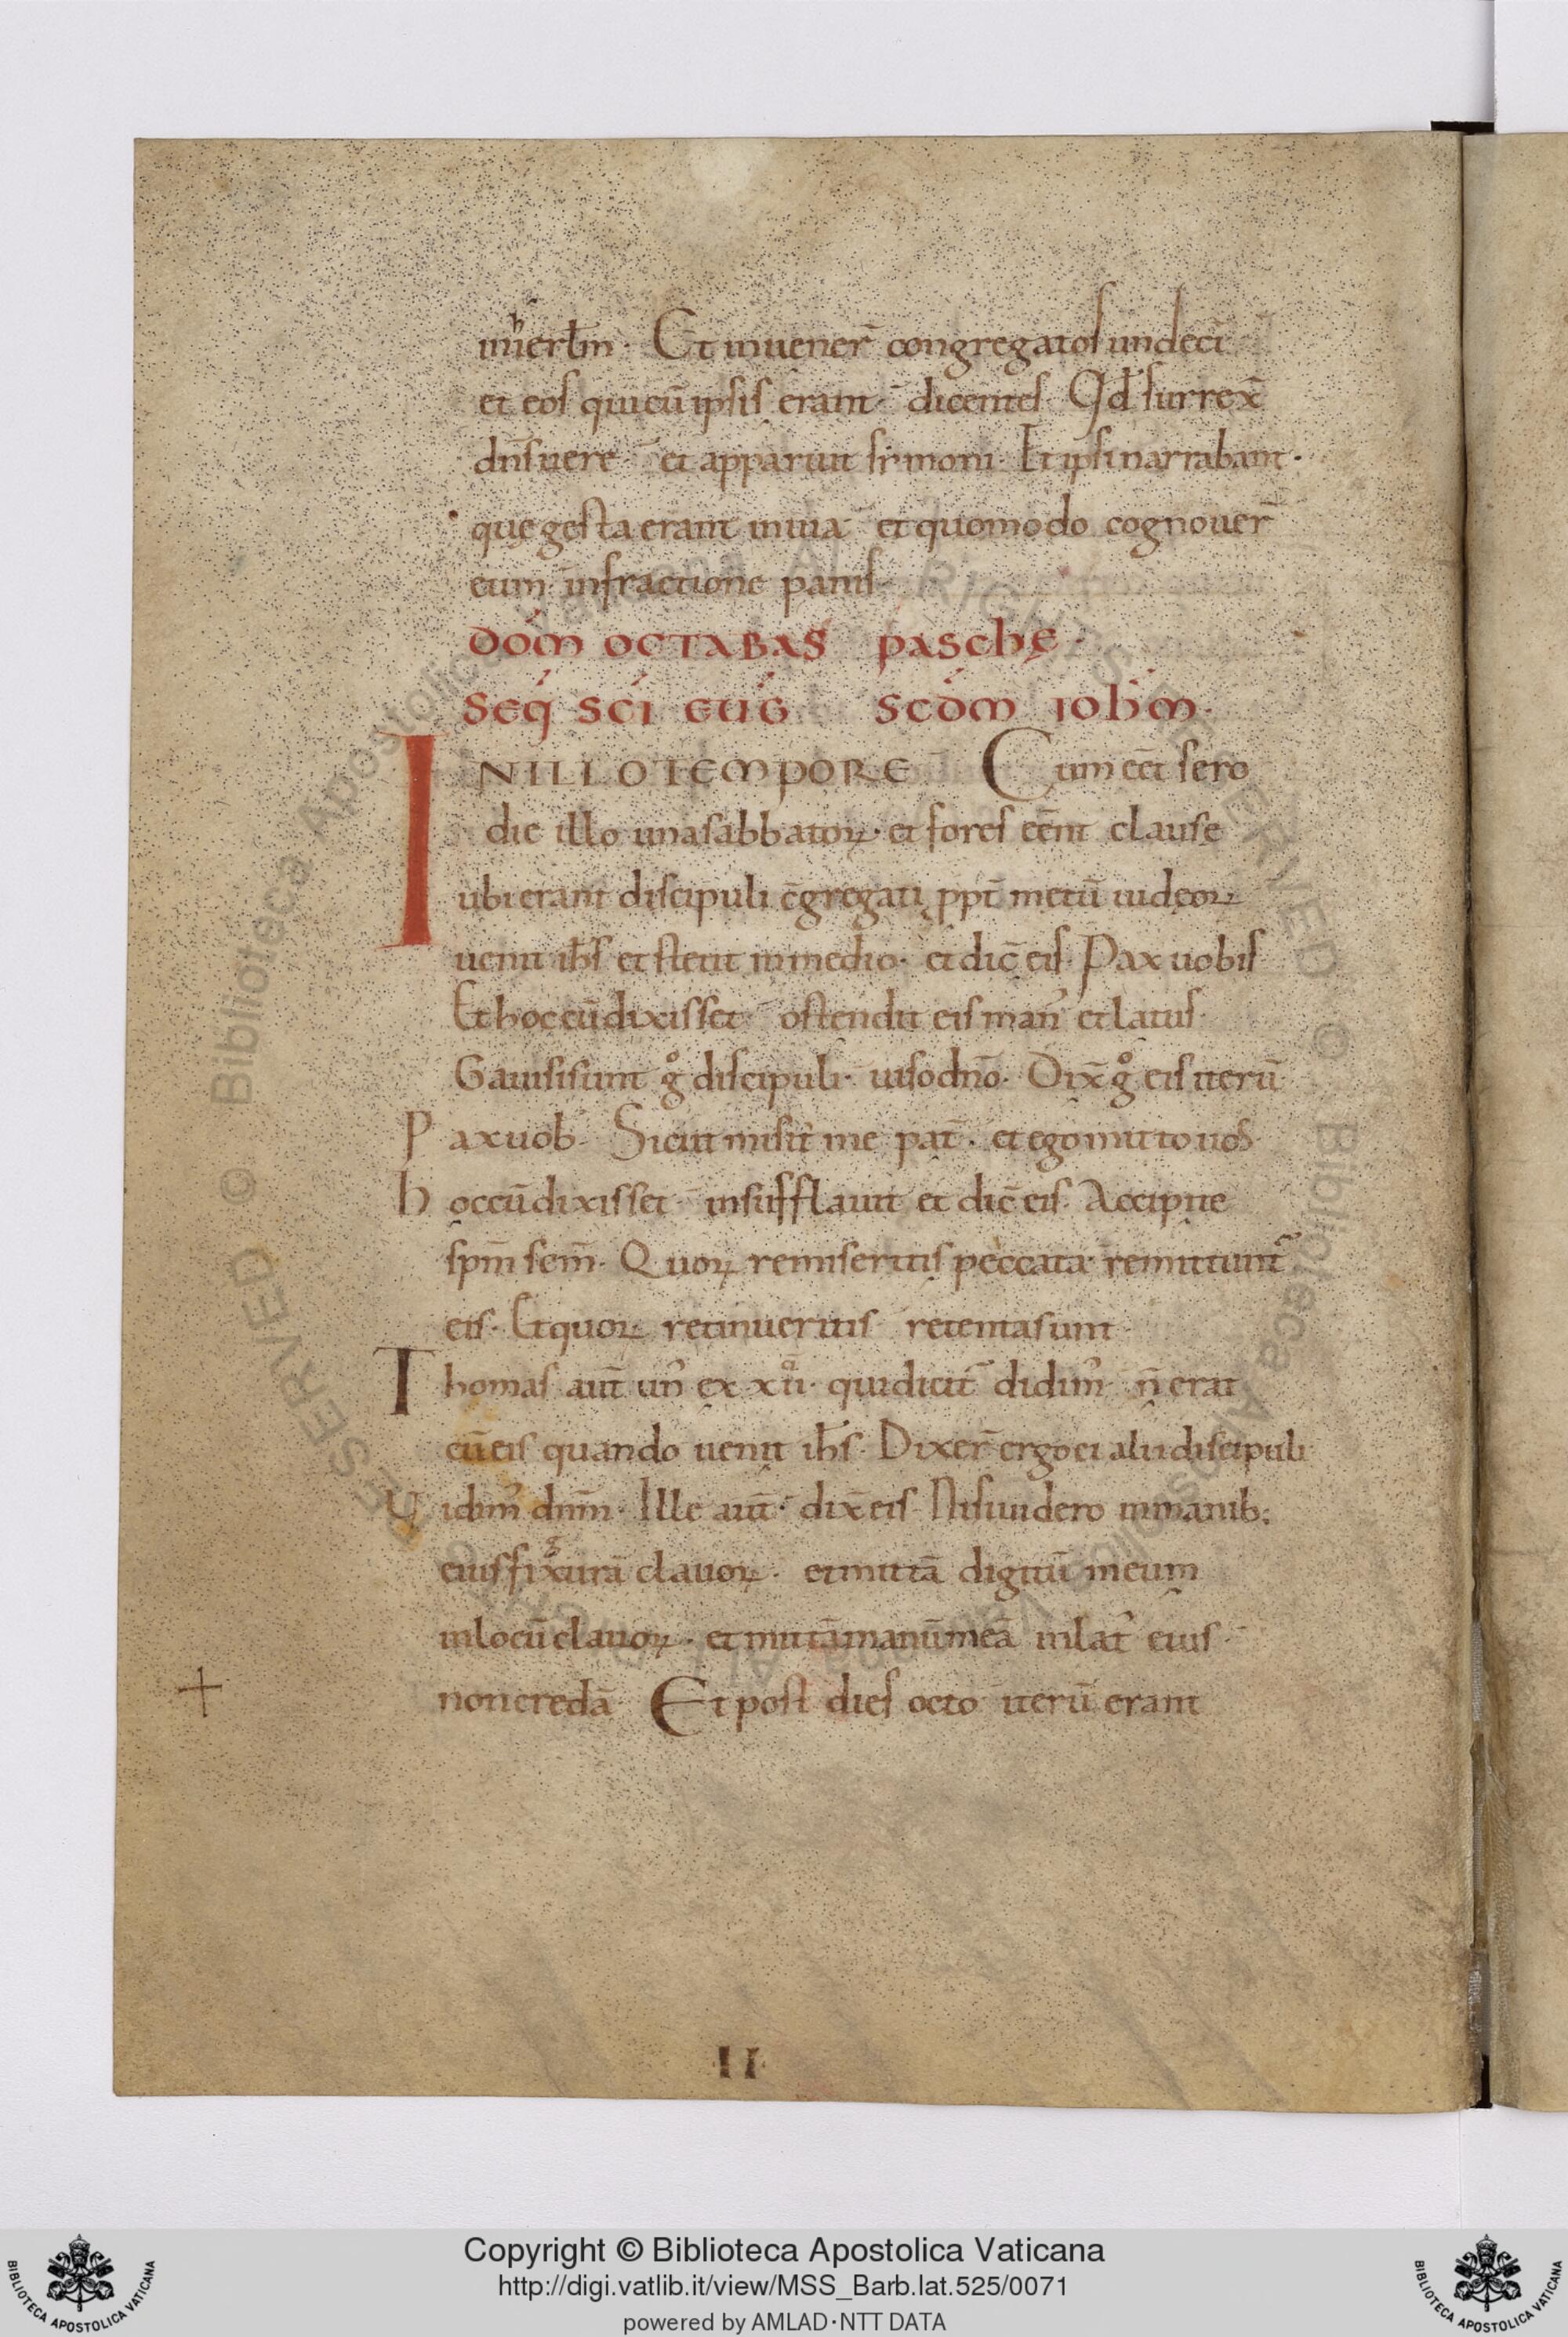 inhierłm · Et inuener̄ congregatos undecī
et eos qui cū ipsis erant · dicentes · Qđ surrex̄
dn̄s uere · et apparuit simoni · Et ipsi narrabant ·
quę gesta erant in uia · et quomodo cognouer̄
eum in fractione panis ·
DOM̄ OCTABAS PASCHĘ ·
SEQ̄ SC̄I EUḠ SCDM̄ IOHM̄ ·
IN ILLO TEMPORE Cum eēt sero
die illo una sabbatoꝝ · et fores eēnt clause
ubi erant discipuli c̄gregati ppt̄ metū iudeoꝝ
uenit ih̄s et stetit in medio · et dic̄ eis · Pax uobis
Et hoc cū dixisset · ostendit eis man᾽ et latus ·
Gauisi sunt gͦ discipuli · uiso dn̄o · Dix̄ gͦ eis iterū
Pax uob · Sicut misit me pat̄ · et ego mitto uos ·
hoc cū dixisset · insufflauit et dic̄ eis · Accipite
spm̄ scm̄ · Quoꝝ remiseritis peccata · remittunt᷑
eis · Et quoꝝ retinueritis retenta sunt ·
Thomas aut̄ un᾽ ex xii · qui dicit᷑ didim᾽ n̄ erat
cū eis quando uenit ih̄s · Dixer̄ ergo ei alii discipuli
Uidim᾽ dnm̄ · Ille aut̄ · dix̄ eis · Nisi uidero in manib;
eius fixurā clauoꝝ · et mittā digitū meum
in locū clauoꝝ · et mittā manū meā in lat᾽ eius ·
non credā · Et post dies octo iterū erant
II
Copyright © Biblioteca Apostolica Vaticana
http://digi.vatlib.it/view/MSS_Barb.lat.525/0071
powered by AMLAD·NTT DATA
BIBLIOTECA APOSTOLICA VATICANA
BIBLIOTECA APOSTOLICA VATICANA